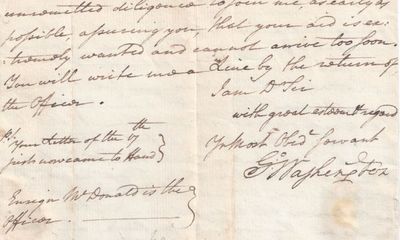 unremitted diligence to join me, as early as
possible, assuring you, that your aid is ex:
:tremely wanted and cannot arrive too soon.
You will write me a Line by the return of
the Officer.
I am Dr Sir
with great esteem & regard
Yr Most Obedt Servant
Go Washington
Ps. Your Letter of the 17th
just now came to Hand
Ensign McDonald is the
Officer.